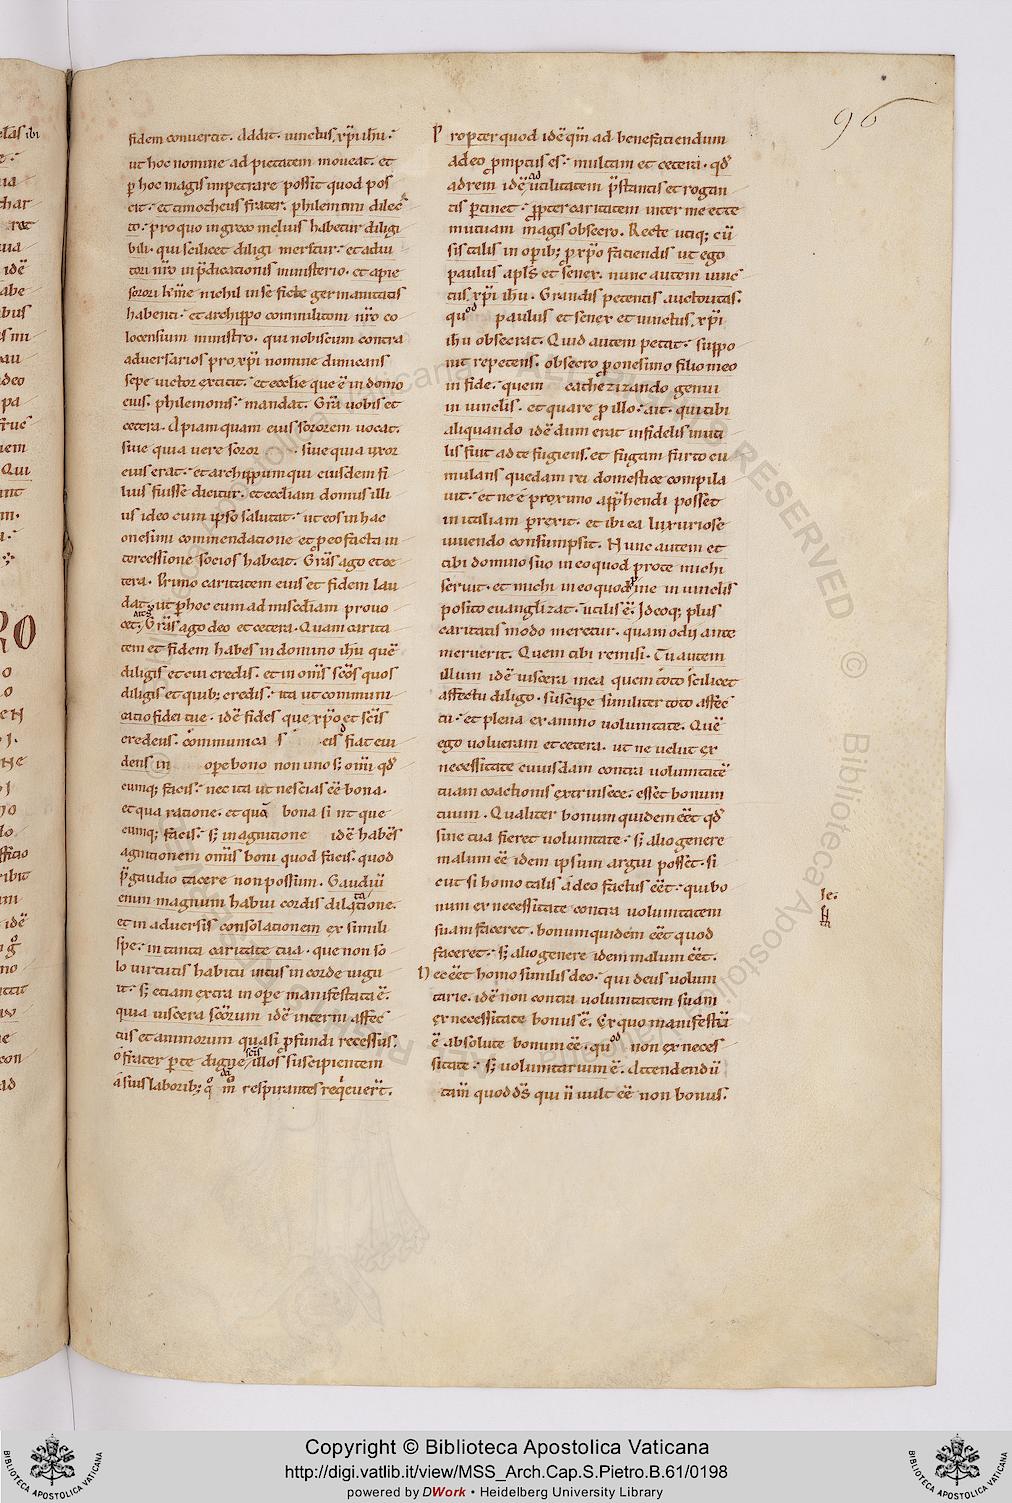 96
fidem convertit. Addit. iunctus xp̄i ih̄u.
ut hoc nomine ad pietatem moveat. et
p hoc magis impetrare possit quod pos
cit. et timotheus frater. philemoni dilec
to. pro quo in greco melius habetur diligi
bili. qui scilicet diligi meretur. et adiu
tori nr̄o in p̄dicationis ministerio. et apie
sorori kr̄me nichil in se ficte germanitatis
habenti. et archippo commilitoni nr̄o co
locensium ministro. qui nobiscum contra
adversarios pro xp̄i nomine dimicans
sepe victor extitit. et ecclie que ē in domo
eius. philemonis. mandat. Gr̄a vobis et
cetera. Apiam quam eius sororem vocat.
sive quia vere soror sive quia uxor
eius erat. et archippum qui eiusdem fi
lius fuisse dicitur. et eccliam domus illi
us ideo cum ipso salutat. ut eos in hac
onesimi commendatione et p eo facta in
tercessione socios habeat. Gr̄as ago et ce
tera. Primo caritatem eius et fidem lau
dat. ut p hoc eum ad misc̄diam provo
cet. Gr̄as ago deo et cetera. Quam carita
tem et fidem habes in domino ih̄u quē
diligis et cui credis. et in om̄s sc̄os quos
diligis et quib; credis. ita ut communi
catio fidei tue. idē fides que xp̄o et sc̄is
credens. communica s eis fiat evi
dens in ope bono non uno s; om̄i qd̄
cumq; facis. nec ita ut nescias eē bona.
et qua ratione. et quā bona si nt que
cumq; facis. s; in agnitione idē habēs
agnitionem om̄is boni quod facis. quod
p̄ gaudio tacere non possum. Gaudiū
enim magnum habui cordis dilatatione.
et in adversis consolationem ex simili
spe. in tanta caritate tua. que non so
lo virtutis habitu intus in corde vigu
it. s; etiam extra in ope manifestata ē.
quia viscera sc̄orum idē interni affec
tus et animorum quasi p̄fundi recessus.
o frater p te digne illos suscipientem
a suis laborib; respirantes reqeuer̄t.
Propter quod idē qm̄ ad benefatiendum
adeo p̄mptus es. multam et cetera. qd̄
ad rem idē ad utilitatem p̄stantis et rogan
tis p̄tinet. p̄pter caritatem inter me et te
mutuam magis obsecro. Recte utiq; cū
sis talis in opib; p xp̄o faciendis ut ego
paulus apl̄s et senex. nunc autem vinc
tus xp̄i ih̄u. Grandis petentis auctoritas.
quod paulus et senex et vinctus xp̄i
ih̄u obsecrat. Quid autem petat. suppo
nit repetens. obsecro p onesimo filio meo
in fide. quem cathezizando genui
in vinclis. et quare p illo. ait. qui tibi
aliquando idē dum erat infidelis inuti
lis fuit ad te fugiens. et fugam furto cu
mulans quedam rei domestice compila
vit. et ne ē proximo app̄hendi posset
in italiam p̄rexit. et ibi ea luxuriose
vivendo consumpsit. Nunc autem et
tibi domino suo in eo quod pro te michi
servit. et michi in eo quod p me in vinclis
posito evangelizat. utilis ē. Ideoq; plus
caritatis modo meretur. quam odii ante
meruerit. Quem tibi remisi. Tu autem
illum idē viscera mea quem toto scilicet
affectu diligo. suscipe similiter toto affec
tu. et plena ex animo voluntate. Quē
ego volueram et cetera. ut ne velut ex
necessitate cuiusdam contra voluntatē
tuam coactionis extrinsece. esset bonum
tuum. Qualiter bonum quidem eēt qd̄
sine tua fieret voluntate. s; alio genere
malum eē idem ipsum argui posset. si
cut si homo talis a deo factus eēt. qui bo
num ex necessitate contra voluntatem
suam faceret. bonum quidem eēt quod
faceret. s; alio genere idem malum eēt.
Nec eēt homo similis deo. qui deus volun
tarie. idē non contra voluntatem suam
ex necessitate bonus ē. Ex quo manifestū
ē absolute bonum eē. quod non ex neces
sitate. s; voluntarium ē. Attendendū
tam̄ quod ds̄ qui n̄ vult eē non bonus.
Copyright © Biblioteca Apostolica Vaticana
http://digi.vatlib.it/view/MSS_Arch.Cap.S.Pietro.B.61/0198
powered by DWork • Heidelberg University Library